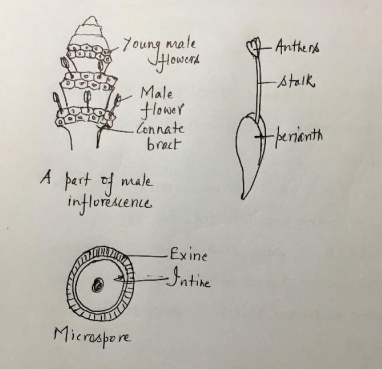 Young male
flowers
Male
flower
Connate
bract
A part of male
inflorescence
Anthers
stalk
perianth
Exine
Intine
Microspore